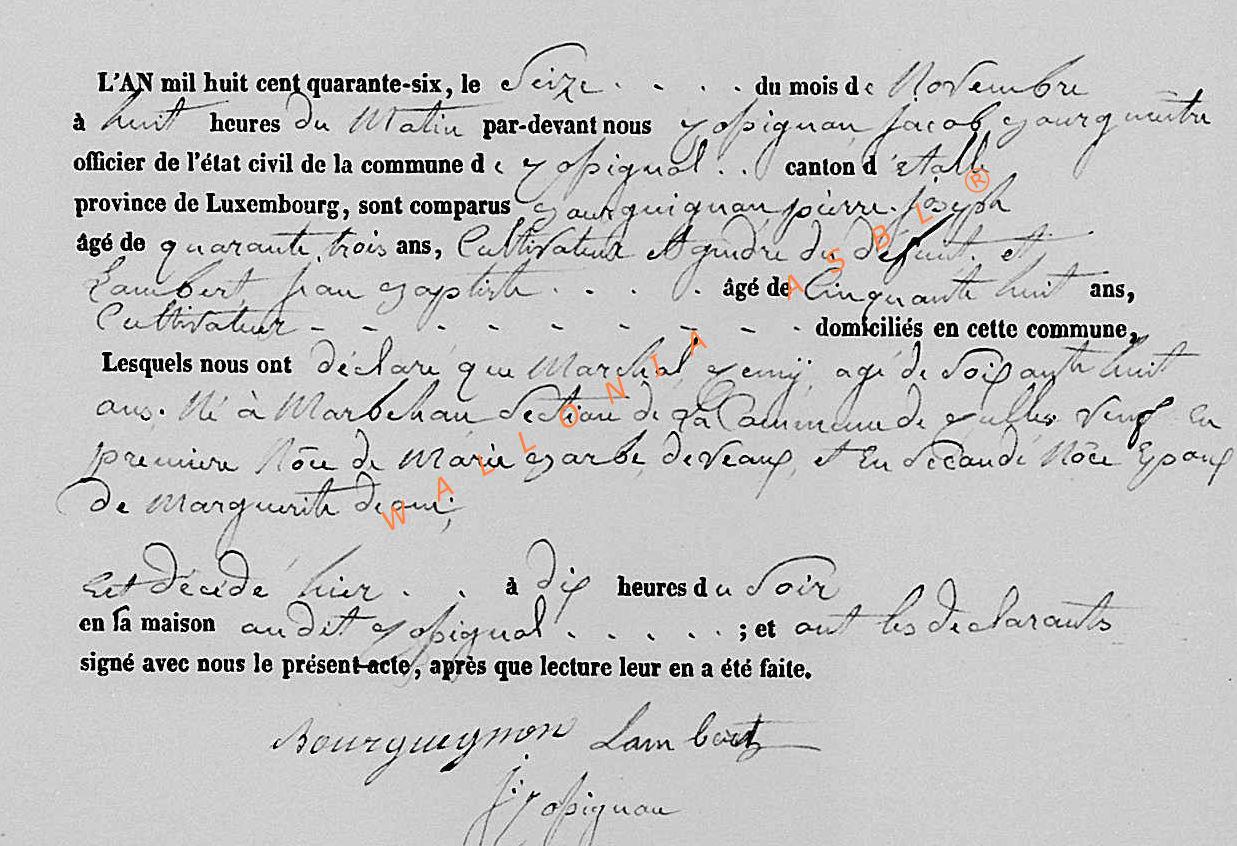 L'AN mil huit cent quarante-six, le Seize . . . . du mois de Novembre
à huit heures du Matin par-devant nous Rossignon Jacob Bourgmestre
officier de l'état civil de la commune de Rossignol . . canton d'Etalle
province de Luxembourg, sont comparus Bourguignon pierre Joseph
âgé de quarante trois ans, Cultivateur et gendre du défunt. et
Lambert jean Baptiste . . . . âgé de Cinquante huit ans,
Cultivateur - - - - - - - - domiciliés en cette commune,
Lesquels nous ont déclaré que Marchal Remy, agé de Soixante huit
ans. Né à Marbehan Section de La Commune de Rulles Veuf En
première Nôce de Marie Barbe, deveaux, et En Seconde Nôce Epoux
de Marguerite
Est décédé hier . . à dix heures du Soir
en sa maison audit Rossignol . . . . . ; et ont les déclarants
signé avec nous le présent acte, après que lecture leur en a été faite.
Bourgueynon Lambert
J. Rossignon
WALLONIA ASBL ®